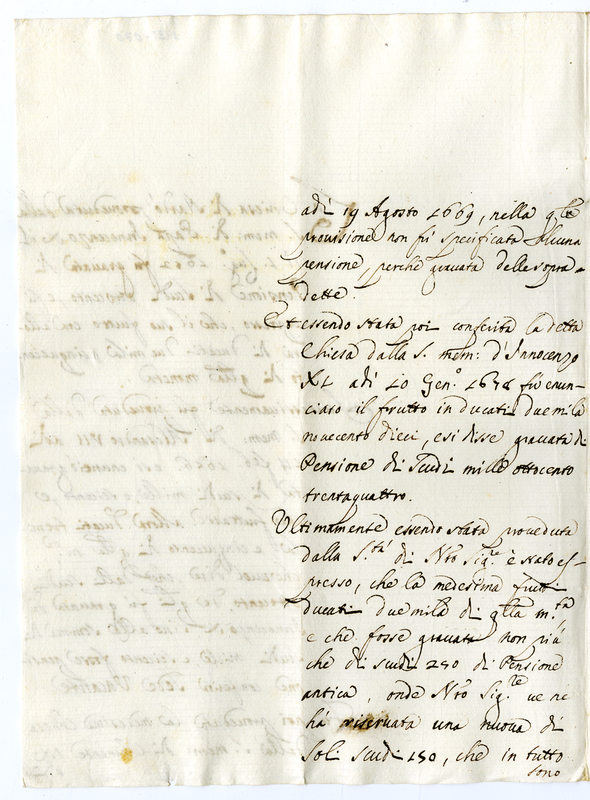 adì 19 Agosto 1669, nella q.le
provisione non fù specificata alcuna
pensione, perche gravata delle sopra=
dette.
Et essendo stata poi conferita la detta
Chiesa dalla S. mem: d'Innocenzo
XI adì 10 Gen.o 1678 fù enun=
ciato il frutto in ducati due mila
novecento dieci, e si disse gravata di
Pensione di Scudi mille ottocento
trentaquattro.
Ultimamente essendo stata proveduta
dalla S.tà di Nro Sig.re è stato es=
presso, che la medesima frutti
ducati due mila di q.lla m.ta
e che fosse gravata non più
che di scudi 250 di Pensione
antica, onde Nro Sig.re ve ne
hà riservata una nuova di
soli scudi 150, che in tutto
sono